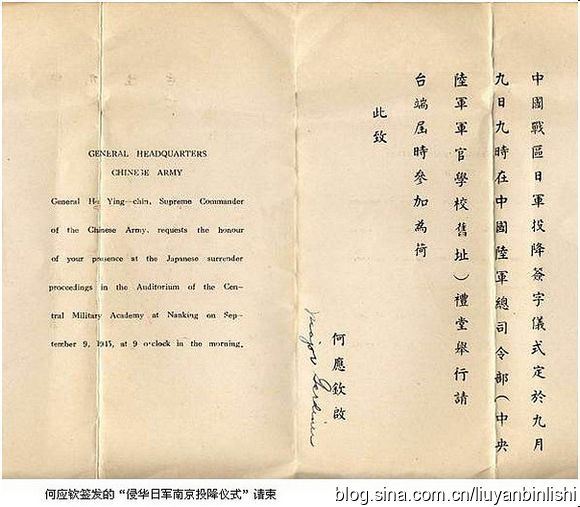 GENERAL HEADQUARTERS
CHINESE ARMY
General Ho Ying-chin, Supreme Commander
of the Chinese Army, requests the honour
of your presence at the Japanese surrender
proceedings in the Auditorium of the Cen-
tral Military Academy at Nanking on Sep-
tember 9, 1945, at 9 o'clock in the morning.
中國戰區日軍投降簽字儀式定於九月
九日九時在中國陸軍總司令部(中央
陸軍軍官學校舊址)禮堂舉行請
台端屆時參加為荷
此致
何應欽啟
Major Gardiner
何应钦签发的“侵华日军南京投降仪式”请柬
blog.sina.com.cn/liuyanbinlishi